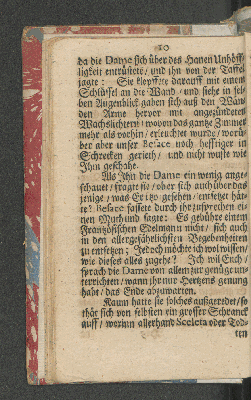 10
da die Dame sich über des Hanen Unhöf-
ligkeit entrüstete / und ihn von der Taffel
jagte: Sie klopffte darauff mit einem
Schlüssel an die Wand / und siehe in sel-
ben Augenblick gaben sich aus den Wän-
den Arme hervor mit angezündeten
Wachslichtern / wovon das gantze Zimmer
mehr als vorhin / erleuchtet wurde / worü-
ber aber unser Beface noch hefftiger in
Schrecken gerieth / und nicht wuste wie
Ihm geschahe.
Als Ihn die Dame ein wenig ange-
schauet / fragte sie / ober sich auch über das
jenige / was Er itzo gesehen / entsetzet hät-
te? Beface fassete durch ihr zusprechen ei-
nen Muth und sagte: Es gebühre einem
Frantzösischen Edelmann nicht / sich auch
in den allergefährlichsten Begebenheiten
zu entsetzen; Jedoch möchte ich wol wissen /
wie dieses alles zugehe? Ich wil Euch /
sprach die Dame von allem zur genüge un-
terrichten / wann ihr nur Hertzens genung
habt / das Ende abzuwarten.
Kaum hatte sie solches außgeredet / so
thät sich von selbsten ein grosser Schranck
auff / worinn allerhand Sceleta oder Tod-
ten